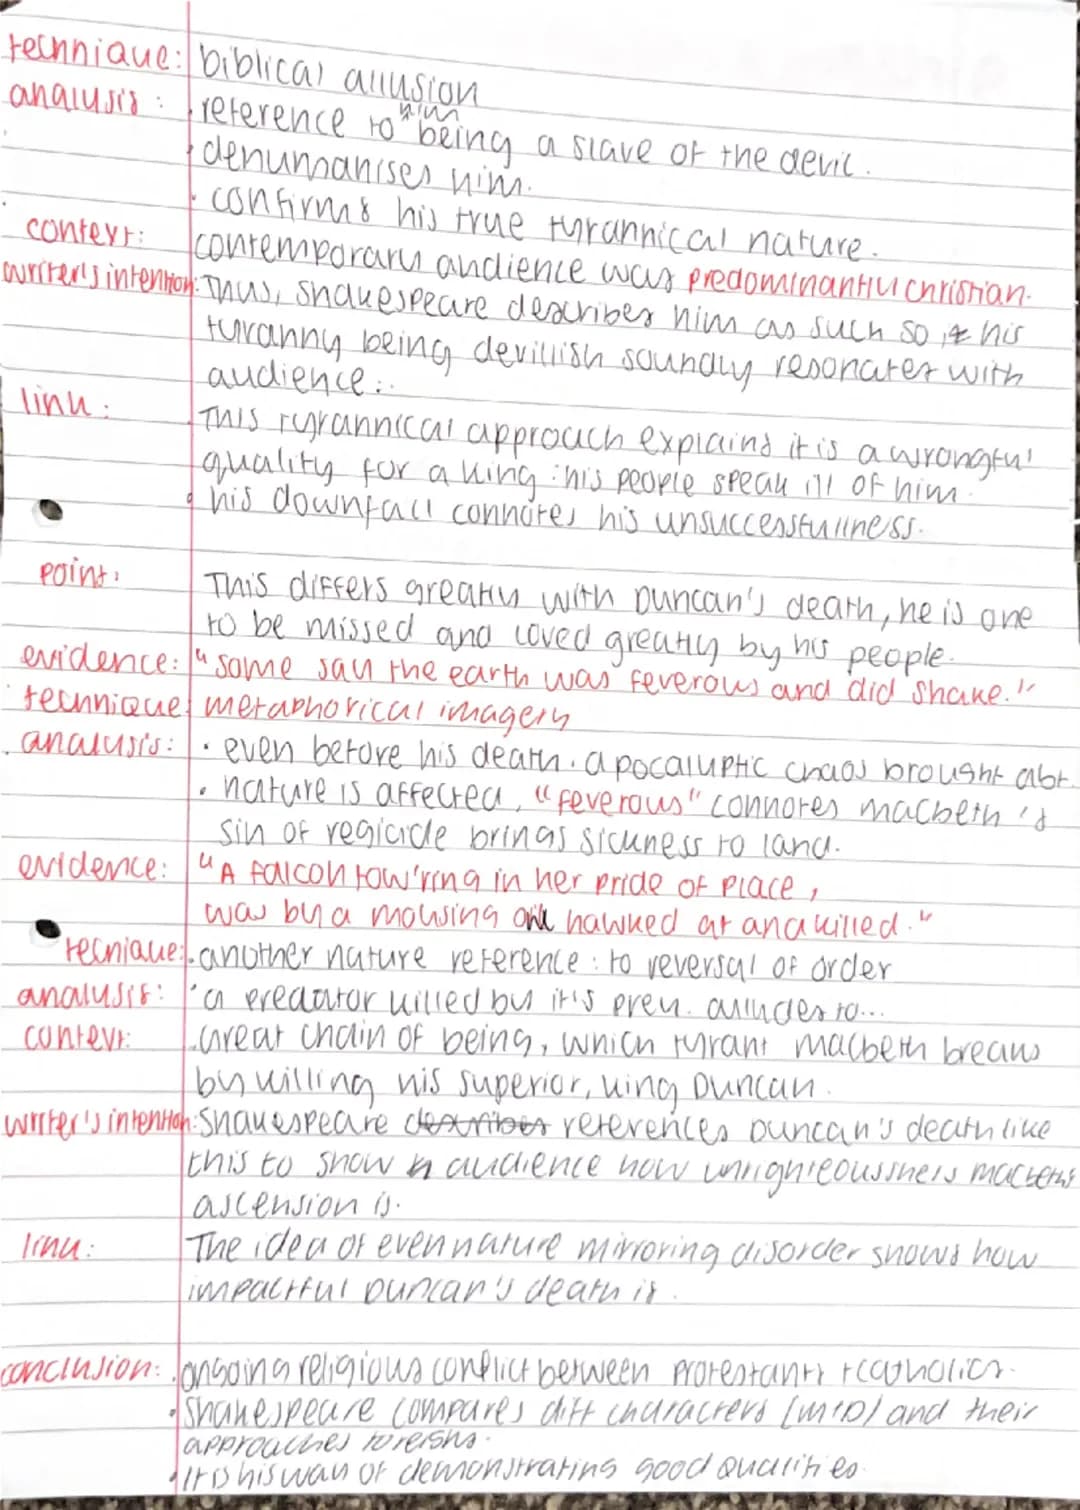 technique: biblical allusion
analysis: reference to "him" being a slave of the devil.
dehumanises him.
confirms his true tyrannical nature.
context: contemporary audience was predominantly christian.
writer's intention: Thus, shakespeare describes him as such so his
tyranny being devillish soundly resonates with
audience.
link: This tyrannical approach explains it is a wrongful
quality for a king: his people speak ill of him.
his downfall connotes his unsuccessfullness.
point: This differs greatly with Duncan's death, he is one
to be missed and loved greatly by his people.
evidence: "some say the earth was feverous and did shake."
technique: metaphorical imagery
analysis: • even before his death. apocalyptic chaos brought abt.
• nature is affected, "feverous" connotes macbeth's
sin of regicide brings sickness to land.
evidence: "A falcon tow'ring in her pride of place,
was by a mousing owl hawked at and killed."
tecnique: another nature reference: to reversal of order
analysis: a predator killed by it's prey. alludes to...
context: Great chain of being, which tyrant macbeth breaks
by killing his superior, king Duncan.
writer's intention: Shakespeare describes references Duncan's death like
this to show audience how unrighteoussness macbeths
ascension is.
link: The idea of even nature mirroring disorder shows how
impactful Duncan's death is.
conclusion: ongoing religious conflict between protestants + catholics.
• Shakespeare compares diff characters (M+D) and their
approaches to reigns.
• It is his way of demonstrating good qualities.